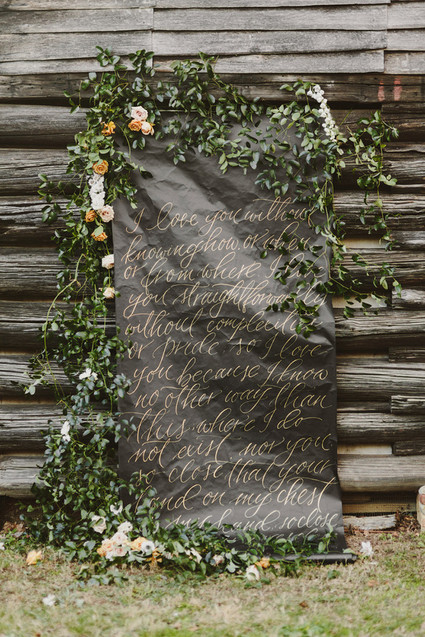 I love you without
knowing how, or when,
or from where. I love
you straightforwardly
without complexity
or pride. so I love
you because I know
no other way than
this: where I do
not exist, nor you
so close that your
hand on my chest
is my hand, so close